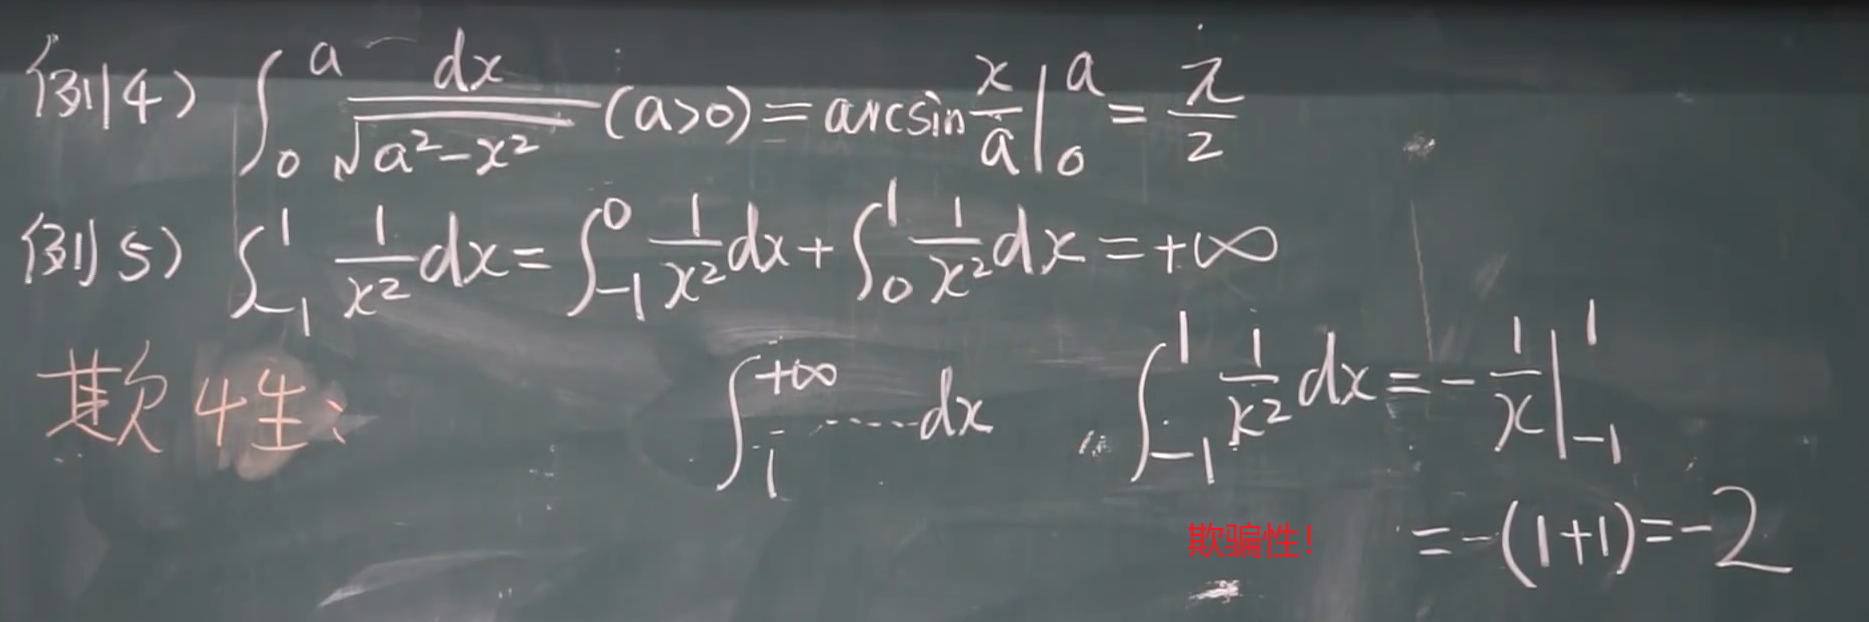 例4) ∫₀ᵃ dx/√(a²-x²) (a>0) = arcsin x/a |₀ᵃ = π/2
例5) ∫₋₁¹ 1/x² dx = ∫₋₁⁰ 1/x² dx + ∫₀¹ 1/x² dx = +∞
欺4性:
∫₁^{+∞} ......dx
∫₋₁¹ 1/x² dx = -1/x |₋₁¹
= -(1+1) = -2
欺骗性!